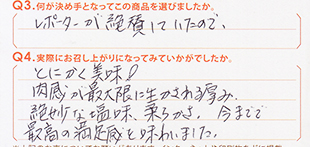 Q3.何が決め手となってこの商品を選びましたか。
レポーターが絶賛していたので、
Q4.実際にお召し上がりになってみていかがでしたか。
とにかく美味!
肉感が最大限に生かされる厚み
絶妙な塩味、柔らかさ。今までで
最高の満足感を味わいました。